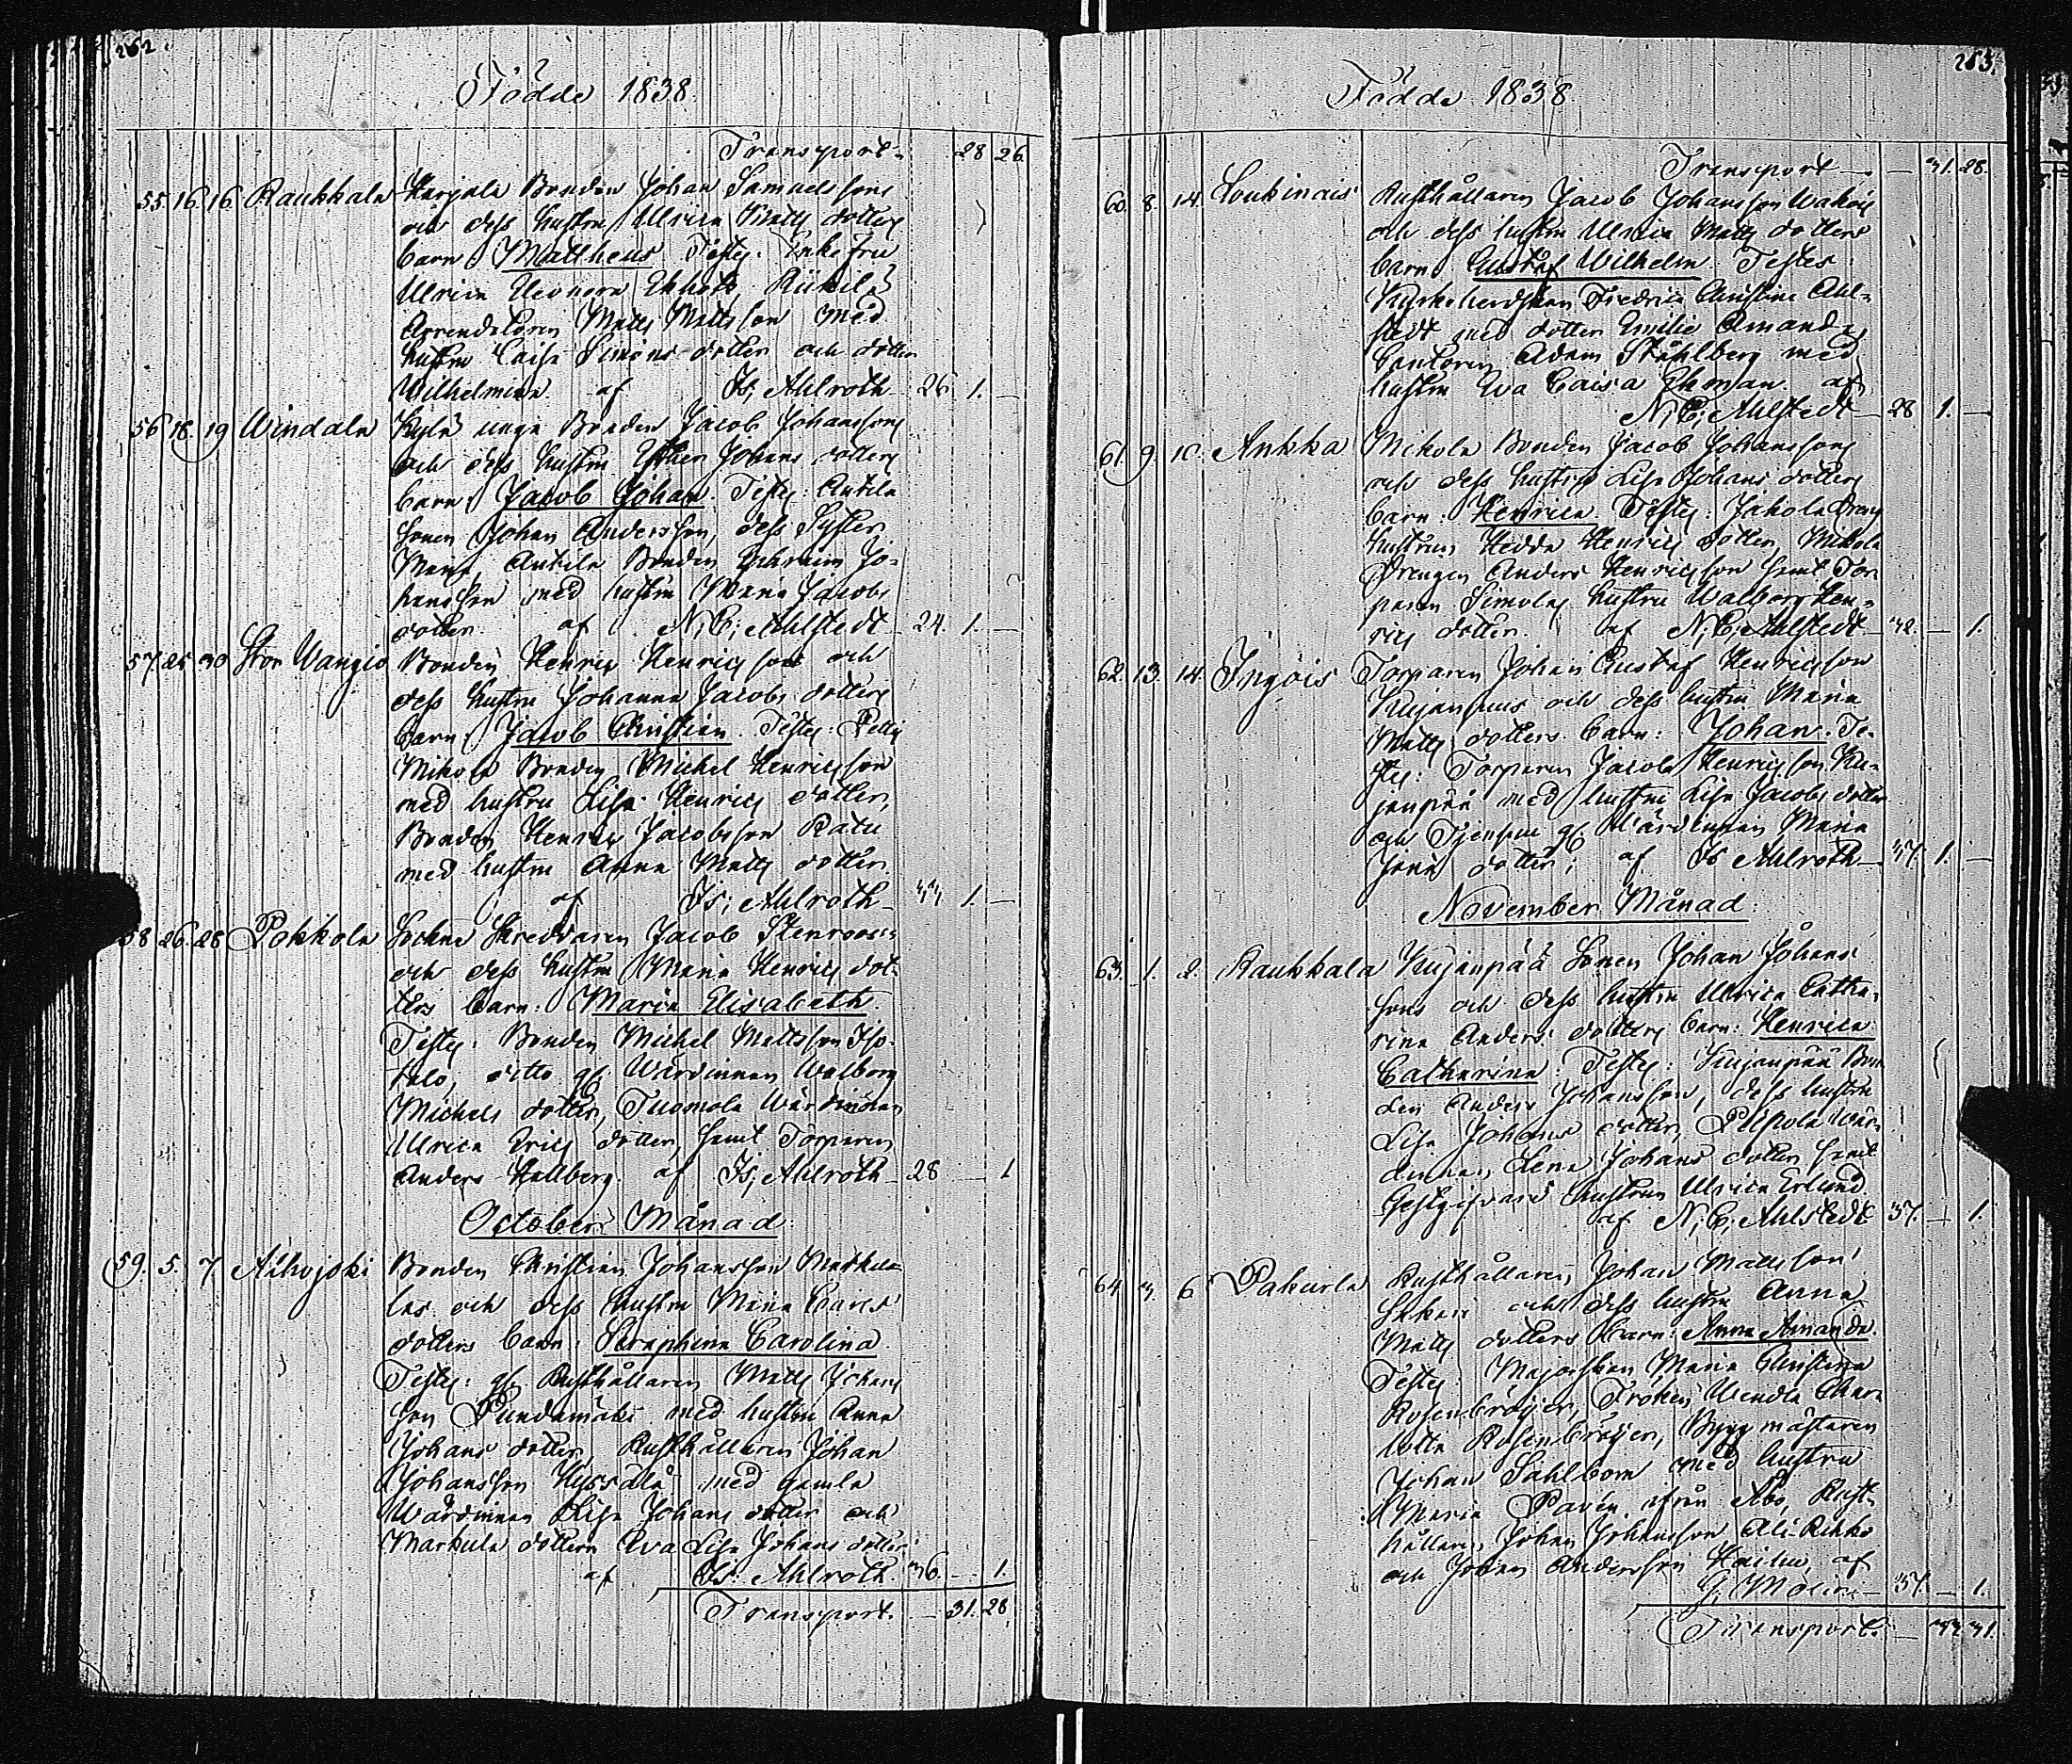 262
Födde 1838.
Transport - 28 26.
55. 16. 16 Raukkala Harjala Bonden Johan Samuelssons
och dess hustru Ulrica Matts dotters
barn Mattheus. Testes: Enkefru
Ulrica Eleonora Ekholtz
Arrendatorn Matts Mattsson med
hustru Caisa Simons dotter och dotter
Wilhelmina. af Is; Ahlroth - 26. 1. -
56 18. 19 Windala Kylä unge Bonden Jacob Johanssons
och dess hustru Esther Johans dotters
barn: Jacob Johan. Testes: Antila
sonen Johan Andersson, dess Syster
Maria, Antila Bonden Ephraim Jo-
hansson med hustru Maria Jacobs
dotter. af N; C; Ahlstedt - 24. 1. -
57. 25 30 Stor Wangio Bonden Henric Henricsson och
dess hustru Johanna Jacobs dotters
barn: Jacob Christian. Testes: Petti
Mikola Bonden Michel Henricsson
med hustru Lisa Henrics dotter,
Bonden Henric Jacobsson Ratu
med hustru Anna Matts dotter.
af Is; Ahlroth - 44 1. -
58 26. 28 Pokkola Sockne Skreddaren Jacob Stenroos's
och dess hustru Maria Henrics dot-
ters barn: Maria Elisabeth.
Testes: Bonden Michel Mattsson Iso-
talo, ditto gl. Wärdinnan Walborg
Michels dotter, Tuomola Wärdinnan
Ulrica Erics dotter, samt Torparen
Anders Hallberg. af Is; Ahlroth - 28 - 1
October Månad.
59. 5. 7. Alhojoki Bonden Christian Johansson Markula-
las och dess hustru Maria Carls
dotters barn: Seraphina Carolina.
Testes: gl. Rusthållaren Matts Johans
son Pundamäki med hustru Anna
Johans dotter, Rusthållaren Johan
Johansson Hyssälä med gamla
Wärdinnan Lisa Johans dotter och
Markula dottern Eva Lisa Johans dotter.
af Is. Ahlroth 36. - 1.
Transport. - 31. 28.
263.
Födde 1838.
Transport - - 31. 28.
60. 8. 14. Loukinais Rusthållaren Jacob Johansson
och dess hustru Ulrica Matts dotters
barn Gustaf Wilhelm. Testes:
Kyrkoherdskan Fredrica Christina Ahl-
stedt med dotter Emilie Amanda,
Cantorn Adam Ståhlberg med
hustru Eva Caisa Ekman. af
N; C; Ahlstedt - 28 1. -
61. 9. 10. Ankka Mikola Bonden Jacob Johanssons
och dess hustru Lisa Johans dotters
barn: Henrica. Testes: Jakola Dreng
hustrun Hedda Henrics dotter, Mikola
Drengen Anders Henricsson samt Tor-
paren Simolas hustru Walborg Hen-
rics dotter. af N; C; Ahlstedt - 32. - 1.
62. 13. 14. Ingois Torparen Johan Gustaf Henricsson
Kujanpääs och dess hustru Maria
Matts dotters barn: Johan. Te-
stes: Torparen Jacob Henricsson Ku-
janpää med hustru Lisa Jacobs dotter
och gl. Wärdinnan Maria
dotter; af Is Ahlroth - 37. 1. -
November Månad.
63. 1. 2. Raukkala Kujanpää Sonen Johan Johans-
sons och dess hustru Ulrica Catha-
rina Anders dotters barn: Henrica
Catharina. Testes: Kujanpää Bon-
den Anders Johansson, dess hustru
Lisa Johans dotter, Pilpola Wär-
dinnan Lena Johans dotter samt
Gestgifvare hustrun Ulrica Erlund
af N; C; Ahlstedt 37. - 1.
64 3. 6 Pakurla Rusthållaren Johan Mattsson
och dess hustru Anna
Matts dotters barn: Anna Amanda.
Testes: Majorskan Maria Christina
Rosenbröijer, Fröken Wendla Char-
lotta Rosenbröijer, Byggmästaren
Johan Sahlbom med hustru
Maria Pavén ifrån Åbo, Rust-
hållaren Johan Johansson Ali Rekko
och Johan Andersson af
G. Molin - 37. - 1.
Transport. - 33. 31.